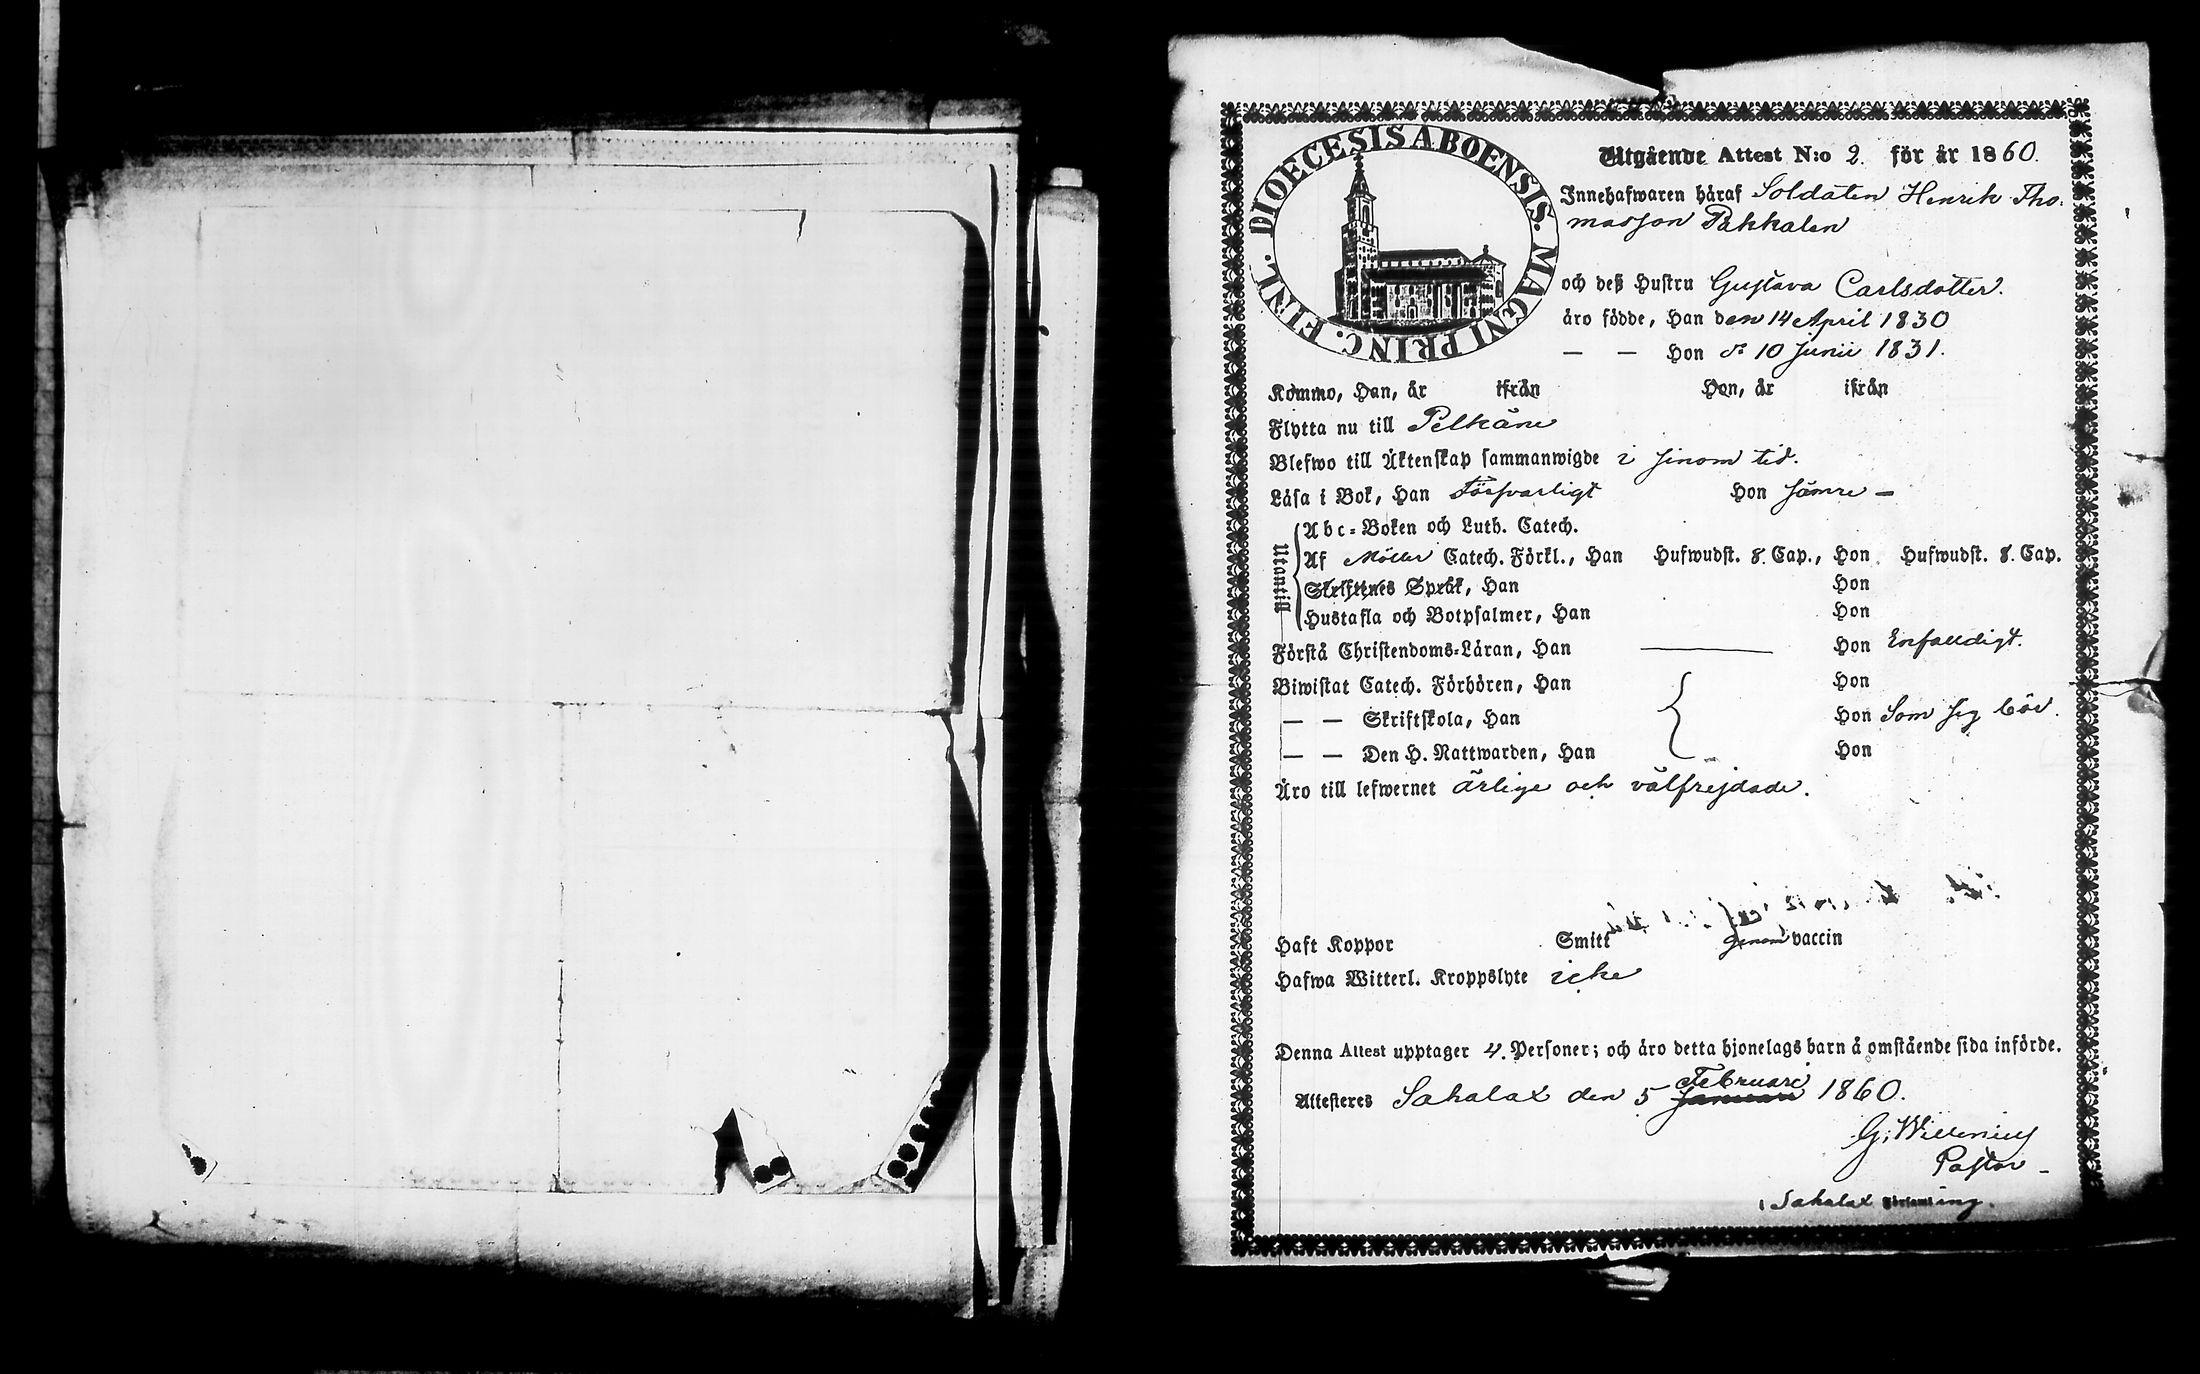 DIOECESIS ABOENSIS. MAGNI PRINC. FINL.
Utgående Attest N:o 2. för år 1860.
Innehafwaren häraf Soldaten Henrik Tho-
masson Pakkalen
och deß Hustru Gustava Carlsdotter.
äro födde, Han den 14 April 1830
— — Hon d: 10 Junii 1831.
Kommo, Han, år ifrån Hon, år ifrån
Flytta nu till Pelkäne
Blefwo till Äktenskap sammanwigde i sinom tid.
Läsa i Bok, Han Försvarligt Hon Sämre —
Utantill
Abc-Boken och Luth. Catech.
Af Möller Catech. Förkl., Han Hufwudst. 8. Cap., Hon Hufwudst. 8. Cap.
Skriftenes Språk, Han Hon
Hustafla och Botpsalmer, Han Hon
Förstå Christendoms-Läran, Han — Hon Enfalldigt.
Biwistat Catech. Förhören, Han Hon
— — Skriftskola, Han Hon Som sig bör.
— — Den H. Nattwarden, Han Hon
Äro till lefwernet ärlige och välfrejdade.
Haft Koppor Smitt genom vaccin
Hafwa Witterl. Kroppslyte icke
Denna Attest upptager 4. Personer; och äro detta hjonelags barn å omstående sida införde.
Februari
Attesteres Sahalax den 5 Januari 1860.
G. Willenius
Pastor —
i Sahalax Församling.